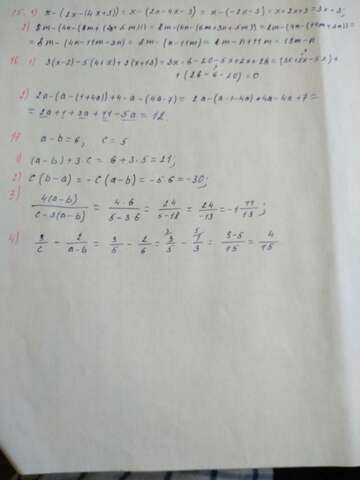 15. 1) x-(2x-(4x+3))=x-(2x-4x-3)=x-(-2x-3)=x+2x+3=3x+3;
2) 8m-(4n-(6m+(3n+5m)))=8m-(4n-(6m+3n+5m))=8m-(4n-(11m+3n))=
=8m-(4n-11m-3n)=8m-(n-11m)=8m-n+11m=19m-n
16. 1) 3(x-2)-5(4+x)+2(x+13)=3x-6-20-5x+2x+26=(3x+2x-5x)+
+(26-6-20)=0
2) 2a-(a-(1+4a))+4-a-(4a-7)= 2a-(a-1-4a)+4-a-4a+7=
=2a+1+3a+11-5a=12
17 a-b=6, c=5
1) (a-b)+3·c= 6+3·5=21;
2) c(b-a)=-c(a-b)=-5·6=-30;
3) 4(a-b)/c-3(a-b)=4·6/5-3·6=24/5-18=24/-13=-1 11/13;
4) 3/c-2/a-b=3/5-2/6=3/5-1/3=9-5/15=4/15